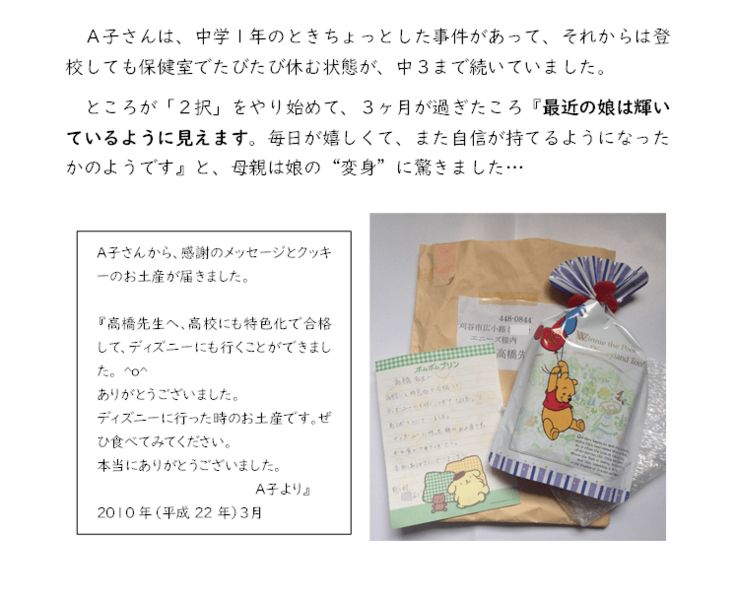 Ａ子さんは、中学１年のときちょっとした事件があって、それからは登
校しても保健室でたびたび休む状態が、中３まで続いていました。
ところが「２択」をやり始めて、３ヶ月が過ぎたころ『最近の娘は輝い
ているように見えます。毎日が嬉しくて、また自信が持てるようになった
かのようです』と、母親は娘の“変身”に驚きました…
Ａ子さんから、感謝のメッセージとクッキ
ーのお土産が届きました。
『高橋先生へ、高校にも特色化で合格
して、ディズニーにも行くことができまし
た。^o^
ありがとうございました。
ディズニーに行った時のお土産です。ぜ
ひ食べてみてください。
本当にありがとうございました。
Ａ子より』
2010年（平成22年）3月
448-0844
刈谷市広小路
エニーズ様内
高橋先
ポムポムプリン
Winnie the Pooh